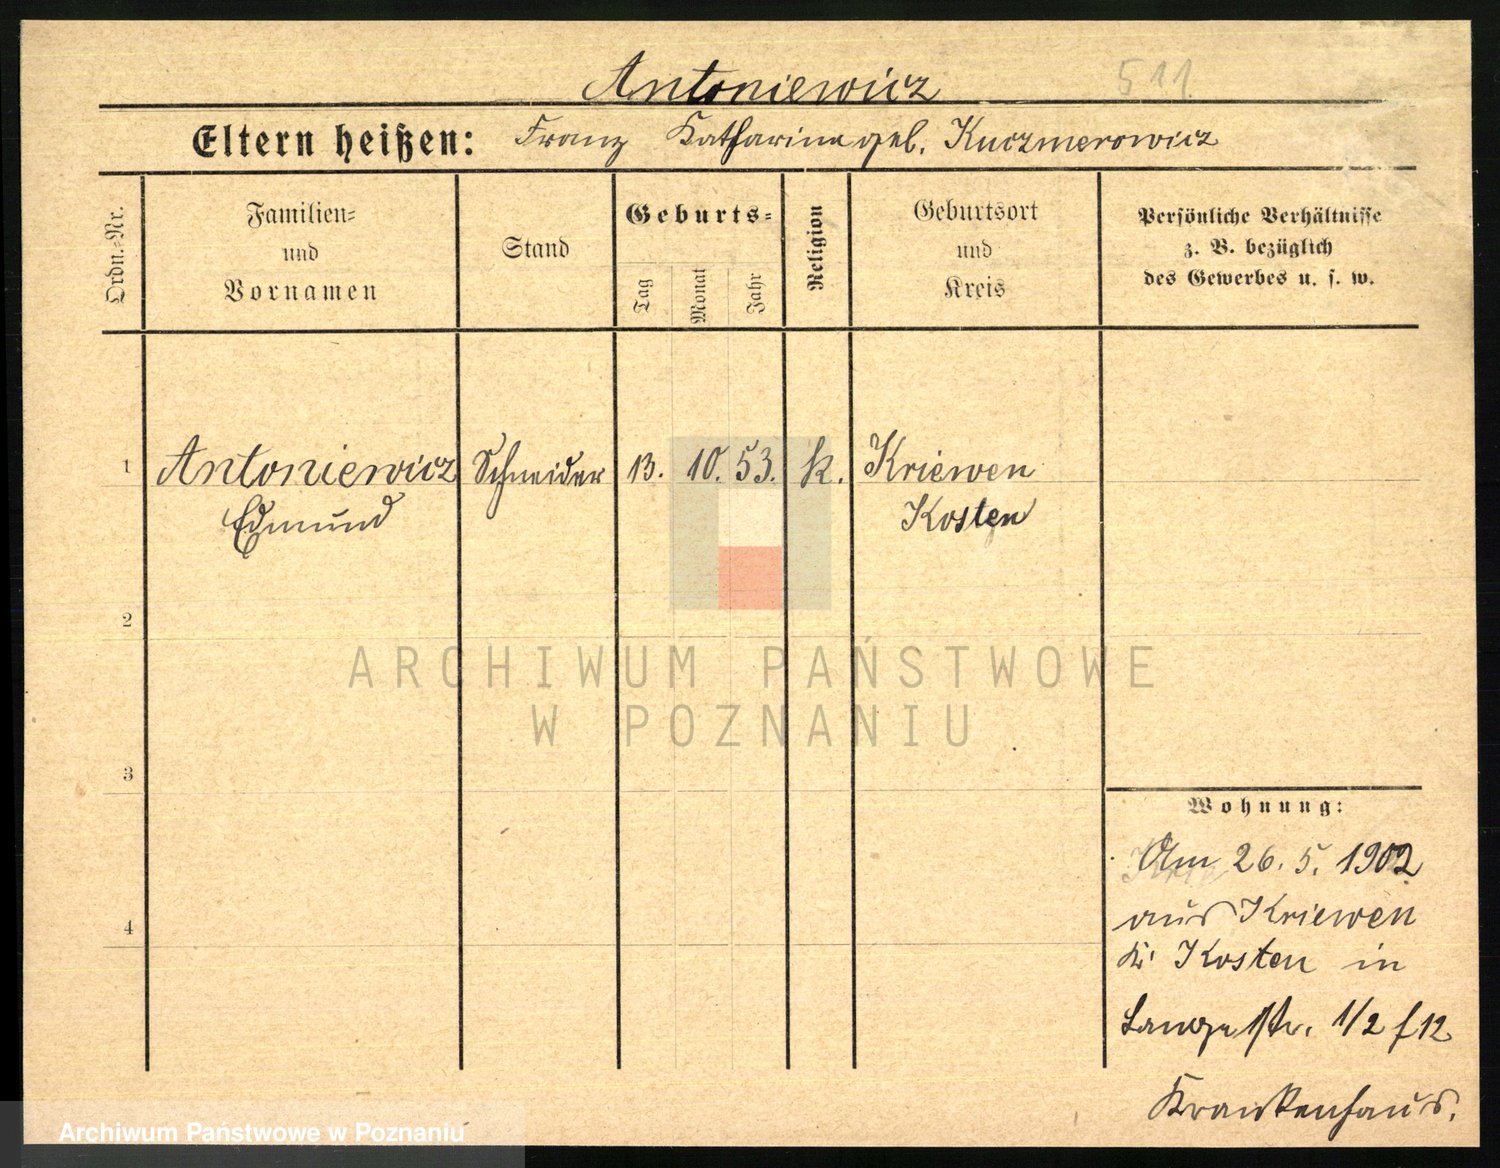 511
Antoniewicz
Eltern heißen: Franz Katharina geb. Kuczmerowicz
Ordn.=Nr.
Familien=
und
Vornamen
Stand
Geburts=
Tag
Monat
Jahr
Religion
Geburtsort
und
Kreis
Persönliche Verhältnisse
z. B. bezüglich
des Gewerbes u. s. w.
1 Antoniewicz Schneider 13. 10. 53. k. Kriewen
Edmund Kosten
2
ARCHIWUM PAŃSTWOWE
W POZNANIU
3
Wohnung:
Am 26. 5. 1902
aus Kriewen
4
Kr. Kosten in
Langestr. 1/2 f 12
Krankenhaus.
Archiwum Państwowe w Poznaniu